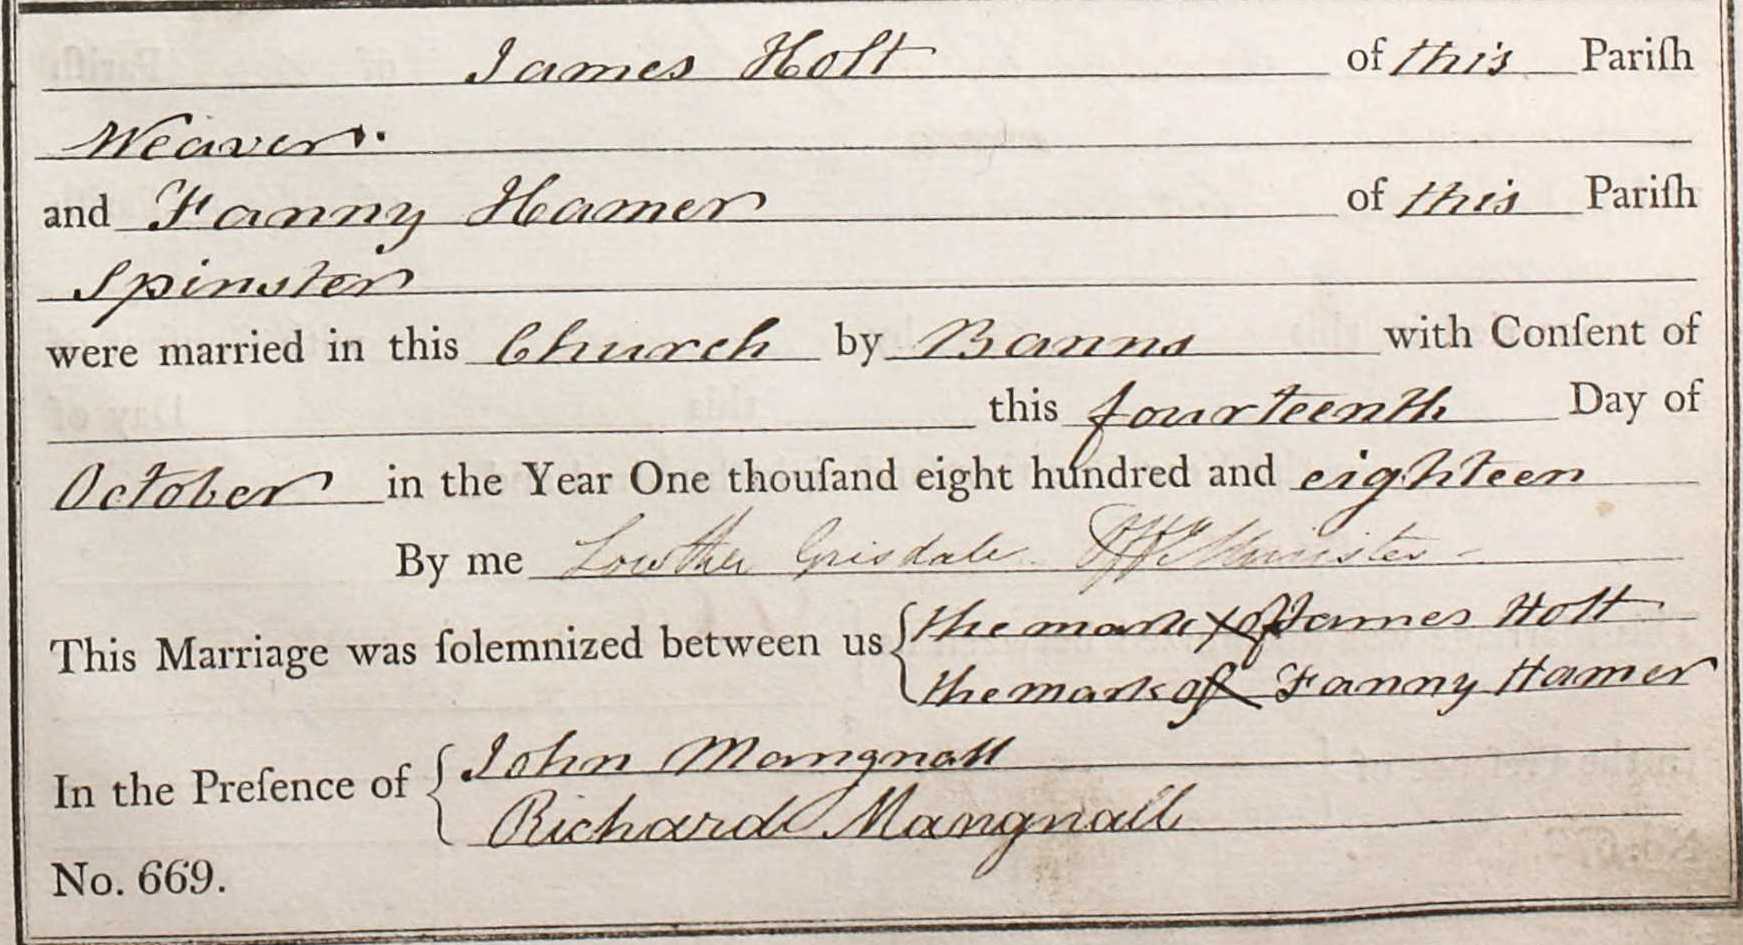 James Holt of this Pariſh
Weaver.
and Fanny Hamer of this Pariſh
Spinster
were married in this Church by Banns with Conſent of
this fourteenth Day of
October in the Year One thouſand eight hundred and eighteen
By me Lowther Grisdale Minister
This Marriage was ſolemnized between us { the mark X of James Holt
the mark of X Fanny Hamer
In the Preſence of { John Mangnall
Richard Mangnall
No. 669.